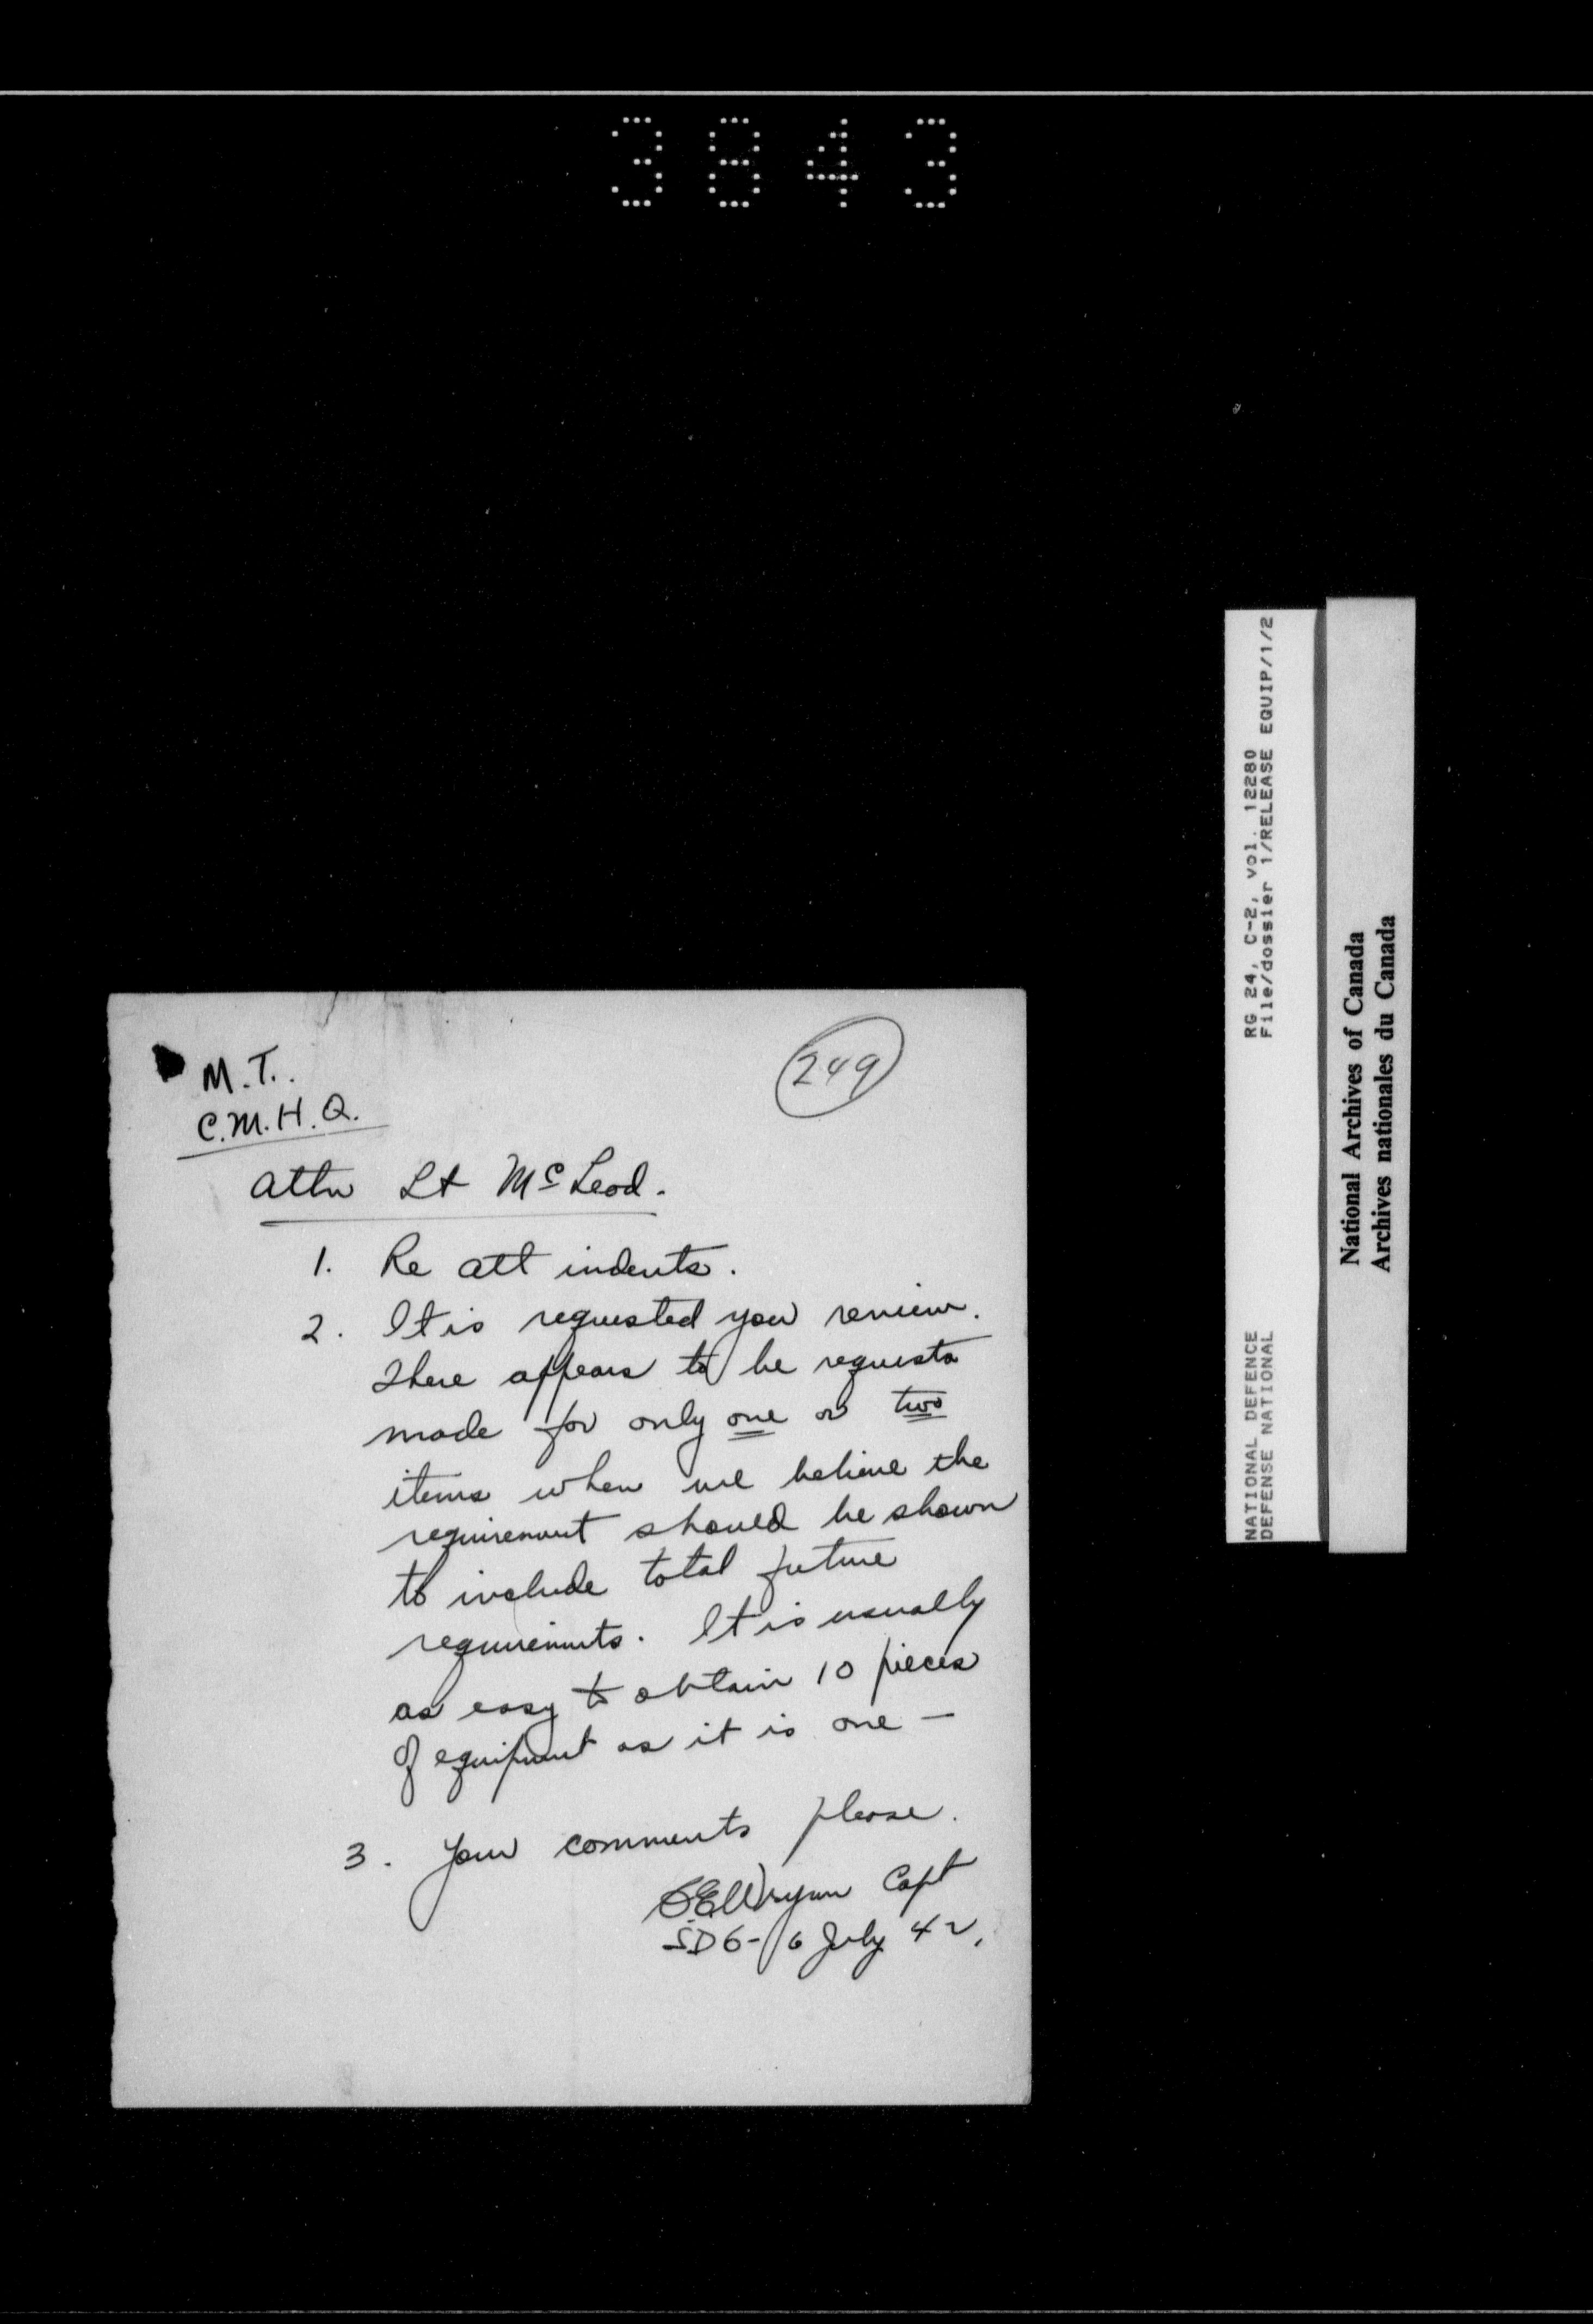 3843
M.T.
C.M.H.Q.
249
Attn Lt McLeod.
1. Re att indents.
2. It is requested you review.
There appears to be requests
made for only one or two
items when we believe the
requirement should be shown
to include total future
requirements. It is usually
as easy to obtain 10 pieces
of equipment as it is one —
3. Your comments please.
Capt
SD6 - 6 July 42.
NATIONAL DEFENCE RG 24, C-2, vol. 12280
DEFENSE NATIONAL File/dossier 1/RELEASE EQUIP/1/2
National Archives of Canada
Archives nationales du Canada